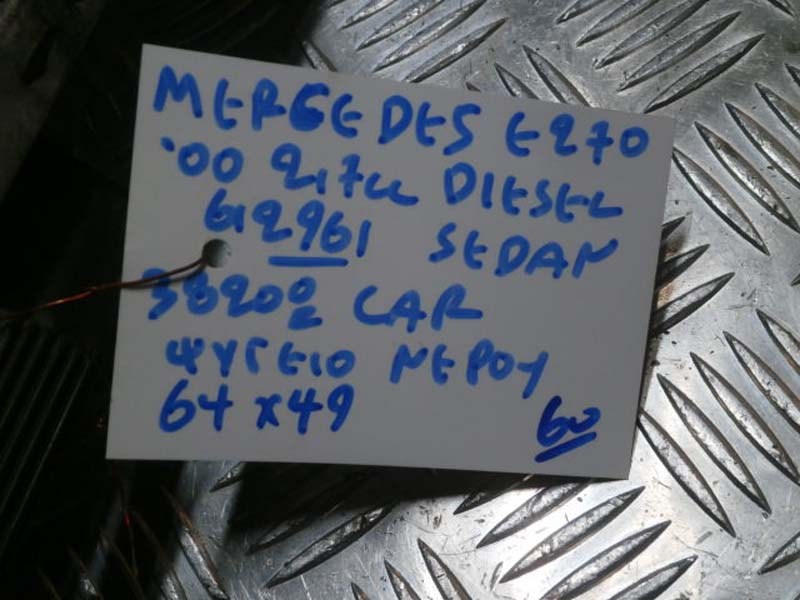 MERCEDES E270
'00 2,7cc DIESEL
612961 SEDAN
38200 CAR
ΨΥΓΕΙΟ ΝΕΡΟΥ
64 x 49
60